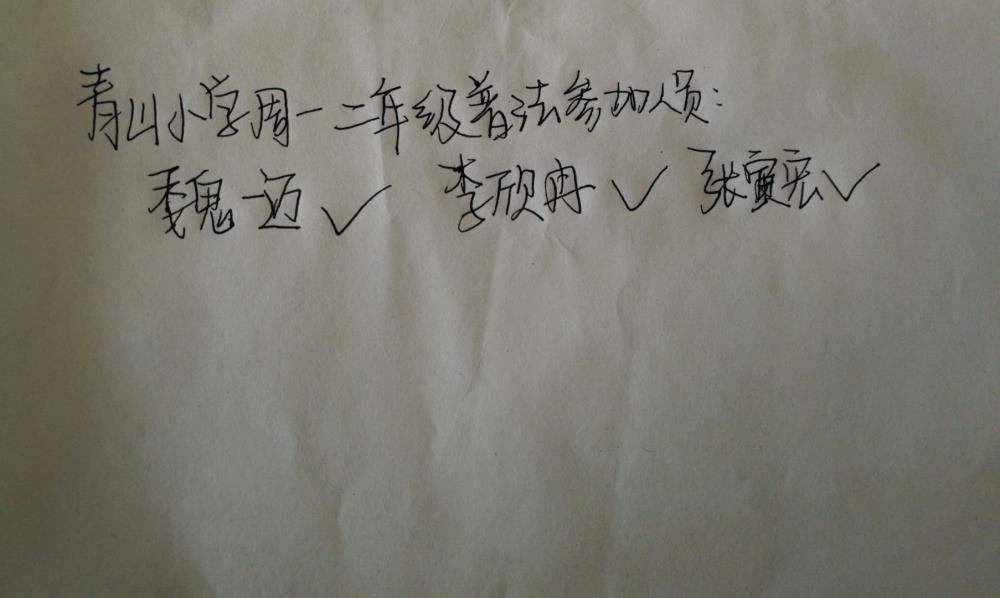 青山小学周一二年级普法参加人员:
魏一迈✓ 李欣冉✓ 张寅宏✓